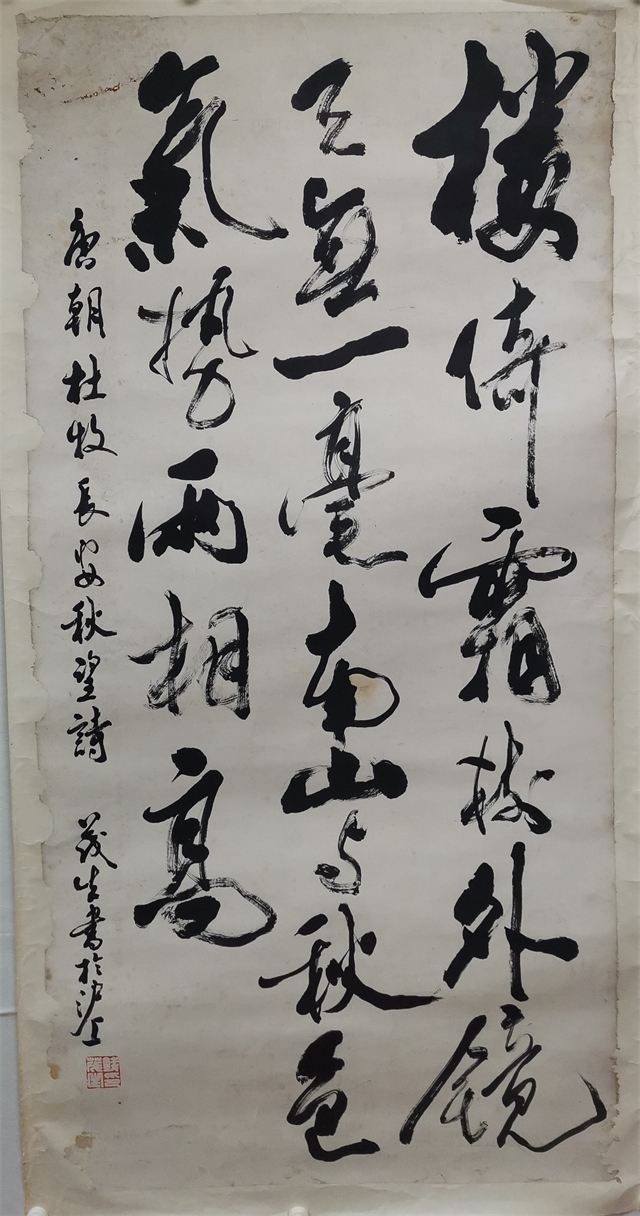 楼倚霜樹外鏡
天無一毫南山与秋色
氣勢兩相高
唐朝杜牧長安秋望詩
茂生書於沪上